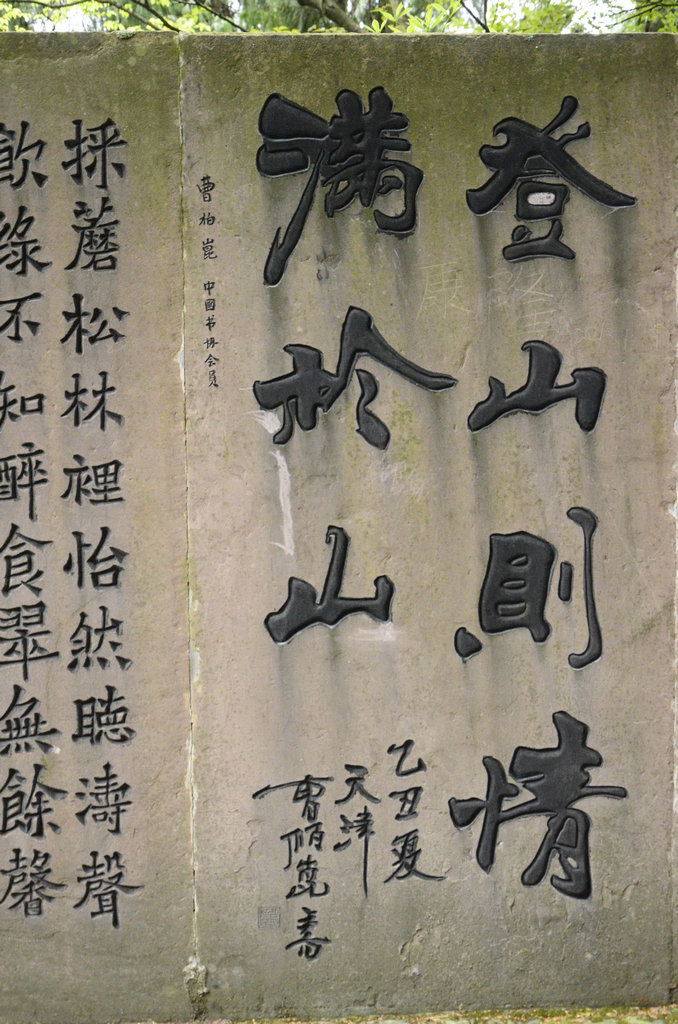 登山則情
滿於山
乙丑夏
天津
曹柏崑書
曹柏崑 中國书协会员
採蘑松林裡怡然聽濤聲
飲綠不知醉食翠無餘馨